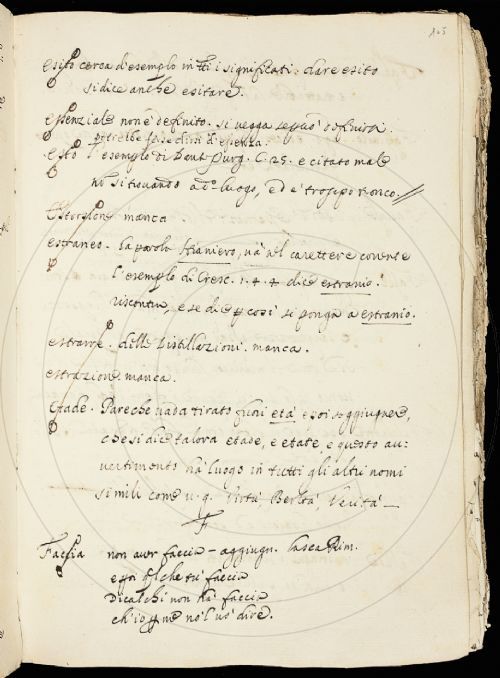 125
esito cerca d'esempio in tti i significati: dare esito
si dice anche esitare.
essenziale non è definito. si vegga se può definirsi.
potrebbe forse dirsi d'essenza.
esto l'esempio di Dant. Purg. C. 25. è citato male
si trovando a do. luogo, ed è troppo ronco.
Estorsione manca.
estraneo. la parola stianiero, và nel carattere corrente
l'esempio di Cresc. 1. 4. 4. dice estranio.
riscontrisi, e se dice così si ponga a estranio.
estrarre. delle Distillazioni. manca.
estrazione. manca.
Etade. Pare che vada tirato fuori età e poi soggiugnere,
che si dice talora etade, e etate, e questo au:
uertimento hà luogo in tutti gli altri nomi
simili come v. g. Virtù, Beltà, Verità —
F
Faccia non aver faccia - aggiugn. Lasca Rim.
che tu faccia
Dica chi non hà faccia
ch'io no'l vò dire.